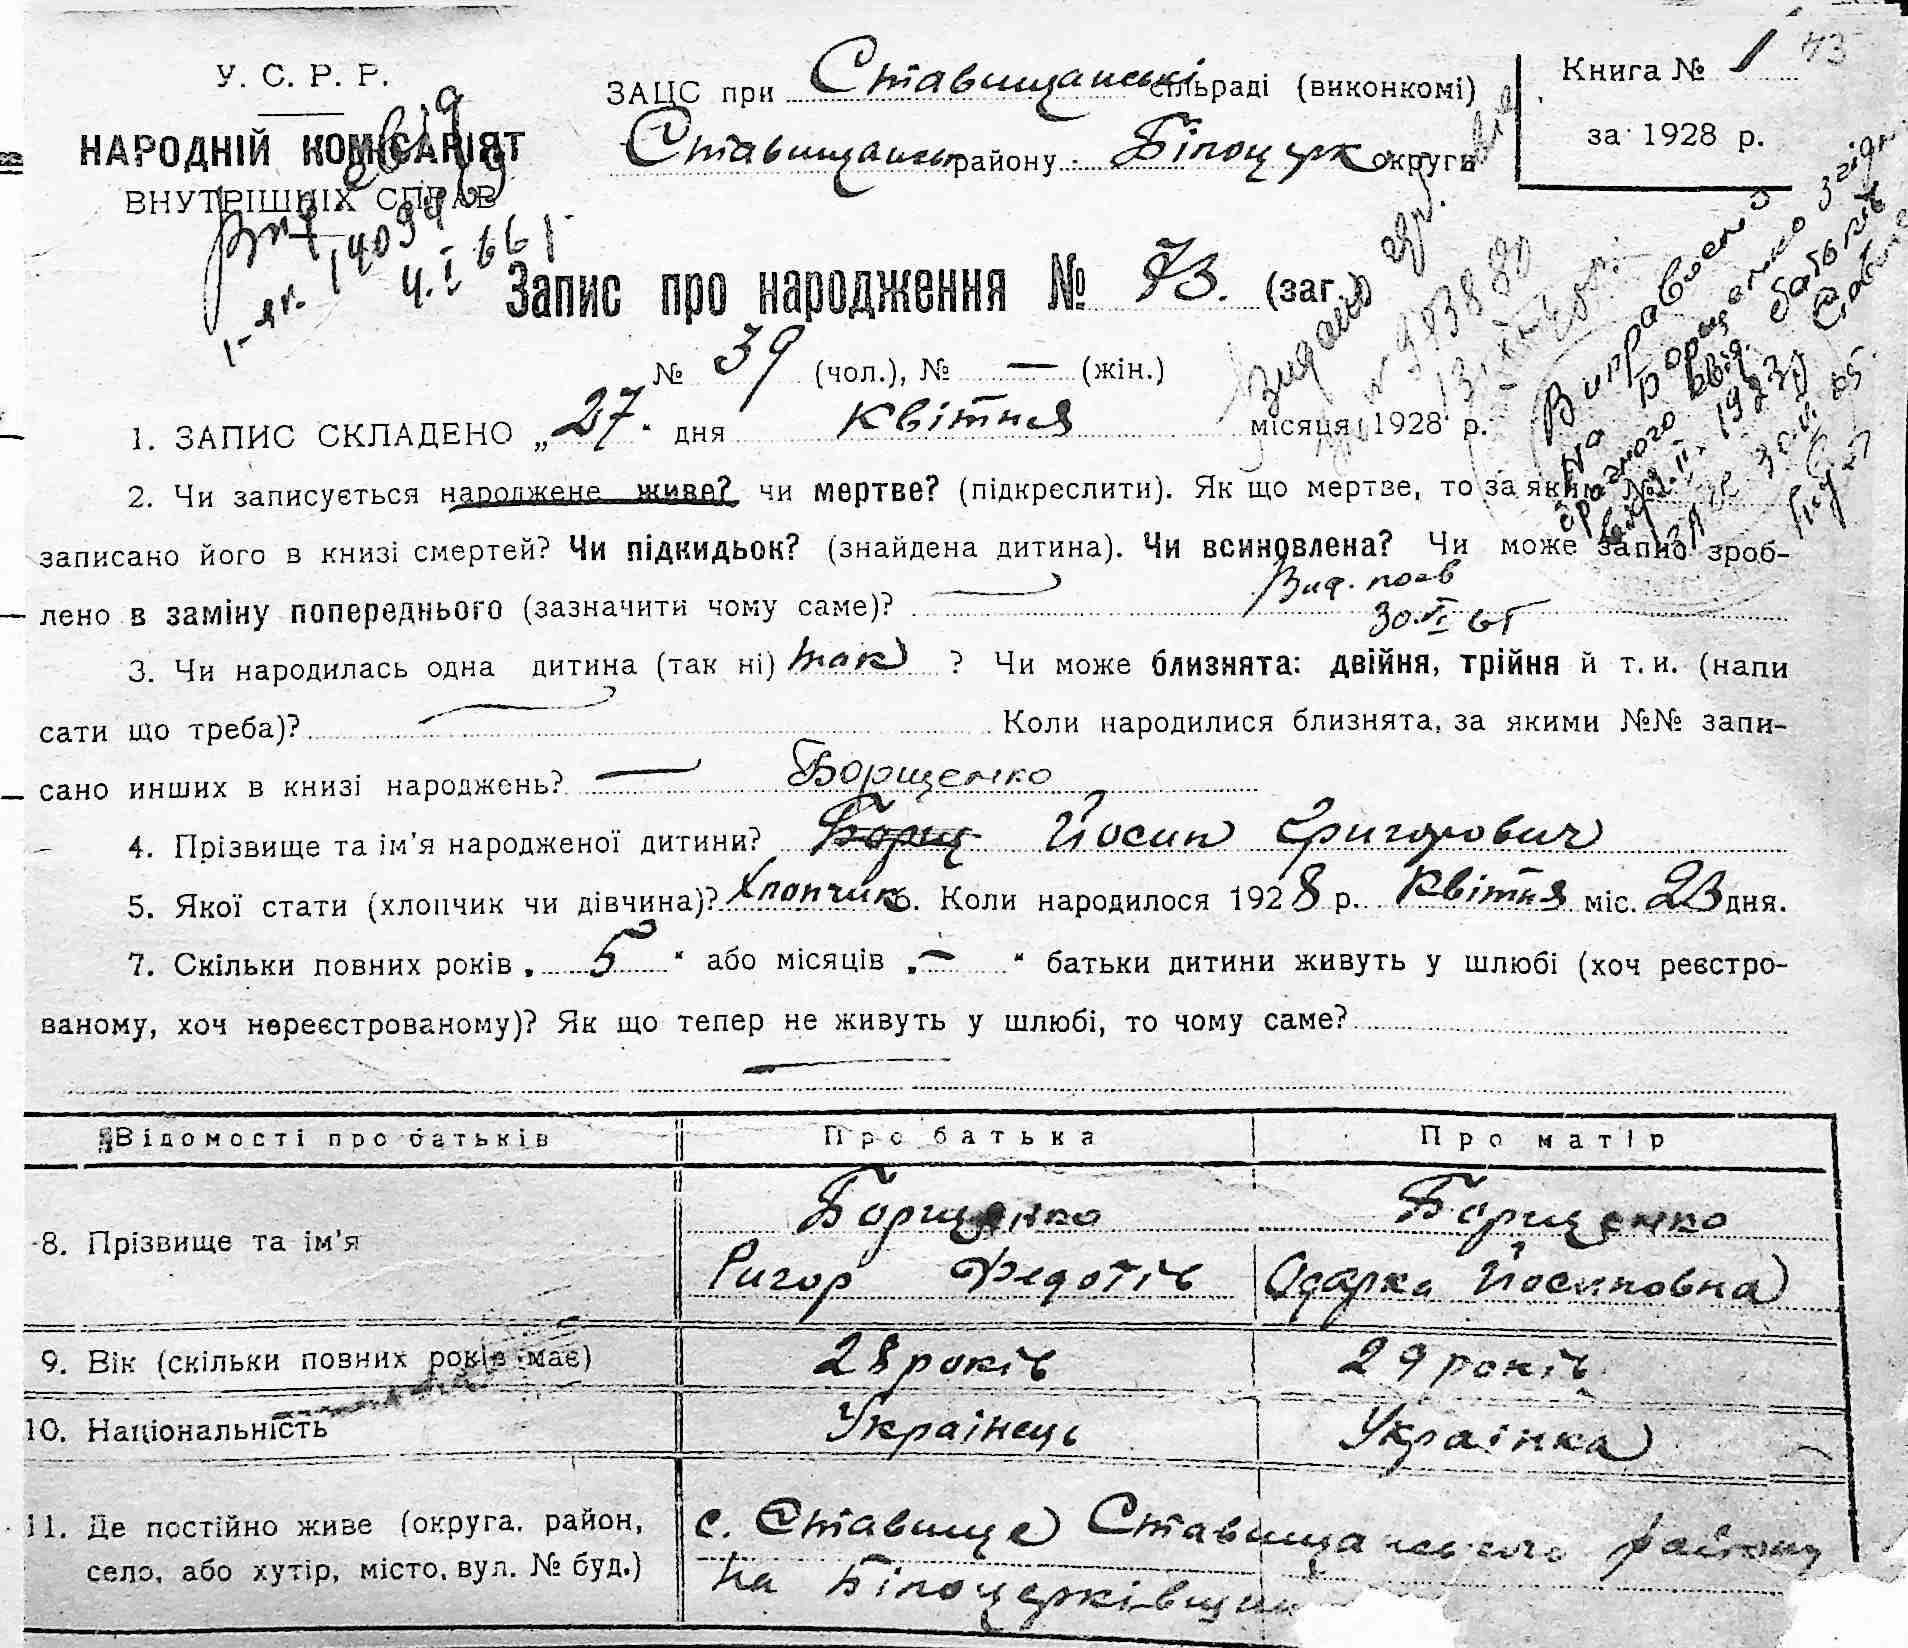 У. С. Р. Р.
НАРОДНІЙ КОМІСАРІЯТ
ВНУТРІШНІХ СПРАВ
ЗАЦС при Ставищанські сільраді (виконкомі)
Ставищансь району Білоцерк округи
Книга № 1
за 1928 р.
73
14039
4.І 661
Запис про народження № 73. (заг.)
№ 39 (чол.), № — (жін.)
1. ЗАПИС СКЛАДЕНО „27“ дня квітня місяця 1928 р.
Виправлено
на Борщенко згідно
батьків
2. Чи записується народжене живе? чи мертве? (підкреслити). Як що мертве, то за яким №
записано його в книзі смертей? Чи підкидьок? (знайдена дитина). Чи всиновлена? Чи може запис зроб-
лено в заміну попереднього (зазначити чому саме)?
Вид. пов
30.VI 65
3. Чи народилась одна дитина (так ні) так ? Чи може близнята: двійня, трійня й т. и. (напи
сати що треба)? Коли народилися близнята, за якими №№ запи-
сано инших в книзі народжень? — Борщенко
4. Прізвище та ім'я народженої дитини? Борщ Йосип Григорович
5. Якої стати (хлопчик чи дівчина)? Хлопчик 6. Коли народилося 1928 р. Квітня міс. 23 дня.
7. Скільки повних років „ 5 “ або місяців „ — “ батьки дитини живуть у шлюбі (хоч реєстро-
ваному, хоч нереєстрованому)? Як що тепер не живуть у шлюбі, то чому саме?
Відомості про батьків Про батька Про матір
8. Прізвище та ім'я Борщенко Борщенко
Ригор Федотів Одарка Йосиповна
9. Вік (скільки повних років має) 28 років 29 років
10. Національність Українець Українка
11. Де постійно живе (округа, район, с. Ставище Ставищанського району
село, або хутір, місто, вул. № буд.) на Білоцерківщині